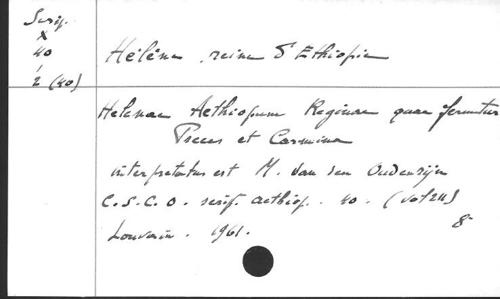 Scrip.
X
40
1/2 (40)
Hélène, reine d'Ethiopie
Helenae Aethiopum Reginae quae feruntur
Preces et Carmina
interpretatus est M. van den Oudenrijn
C.S.C.O. script. aethiop. 40. (Vol 211)
Louvain. 1961.
8°